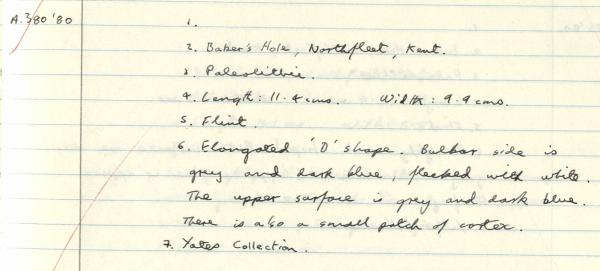 A.380'80
1.
2. Baker's Hole, Northfleet, Kent.
3. Paleolithic.
4. Length: 11.4 cms. Width: 9.9 cms.
5. Flint.
6. Elongated 'D' shape. Bulbar side is
grey and dark blue, flecked with white.
The upper surface is grey and dark blue.
There is also a small patch of cortex.
7. Yates Collection.